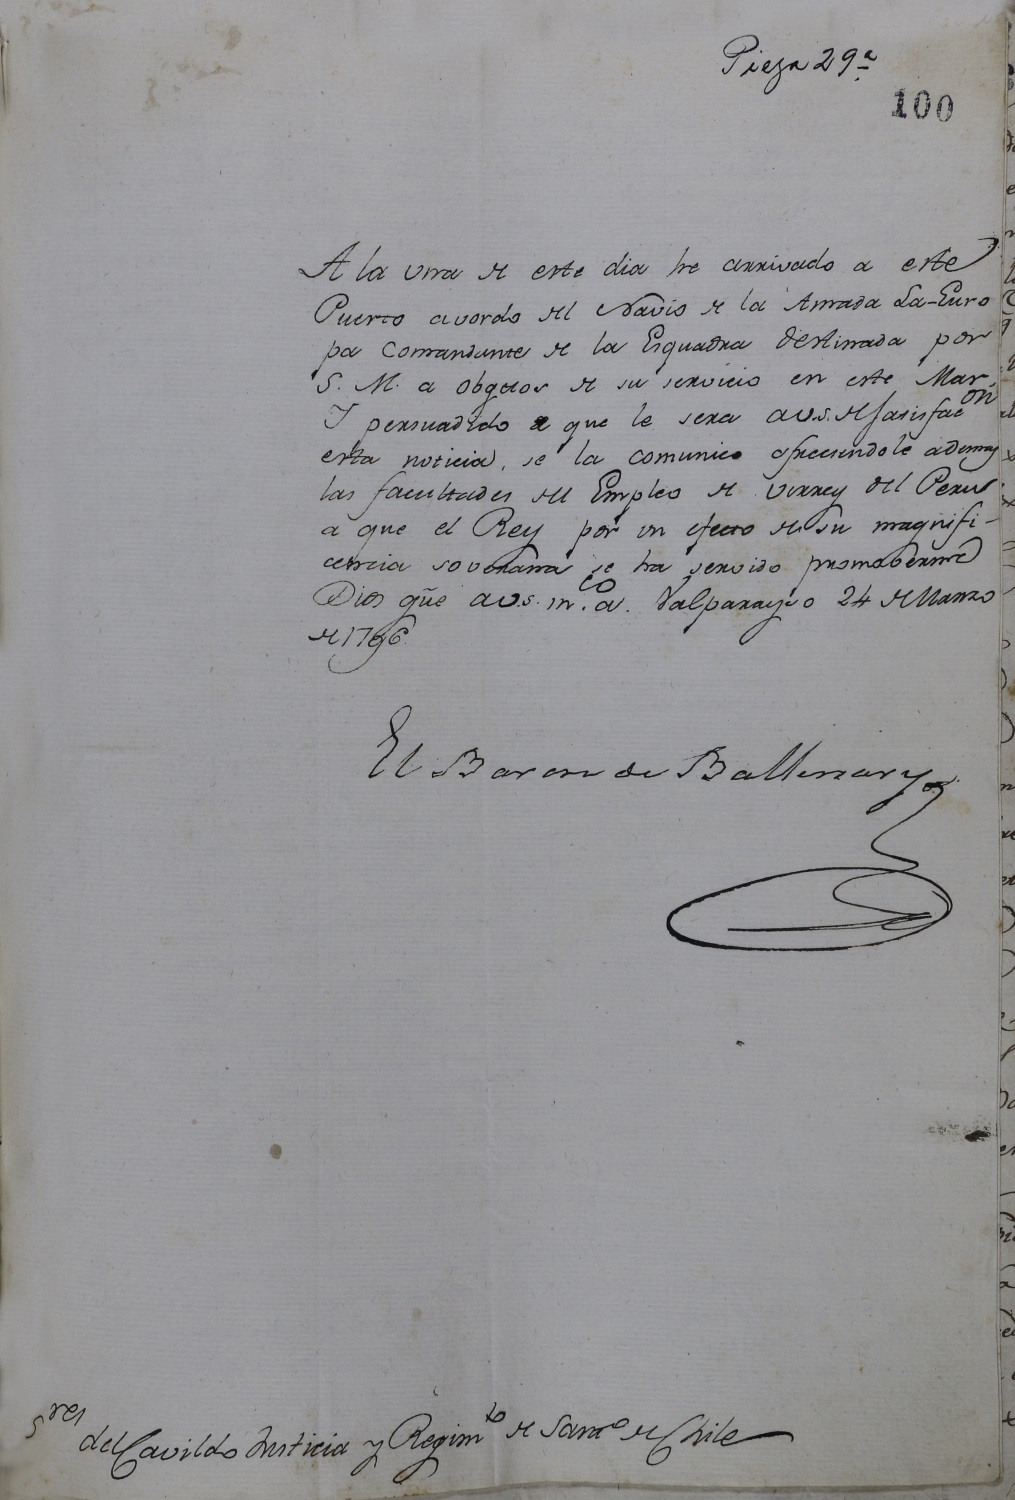 Pieza 29.ª
100
A la una de este dia he arrivado a este
Puerto avordo del Navio de la Armada La Euro
pa Comandante de la Esquadra destinada por
S. M. a obgetos de su servicio en este Mar.
Y persuadido a que le sera a V.S. de satisfac.on
esta noticia, se la comunico ofreciendole ademas
las facultades del Empleo de Virrey del Peru
a que el Rey por un efecto de su magnifi-
cencia soverana se ha servido promoberme
Dios gũe a V.S. m.s a.s Valparayso 24 de Marzo
de 1796.
El Baron de Ballenary
S.res del Cavildo Justicia y Regim.to de Sant.o de Chile